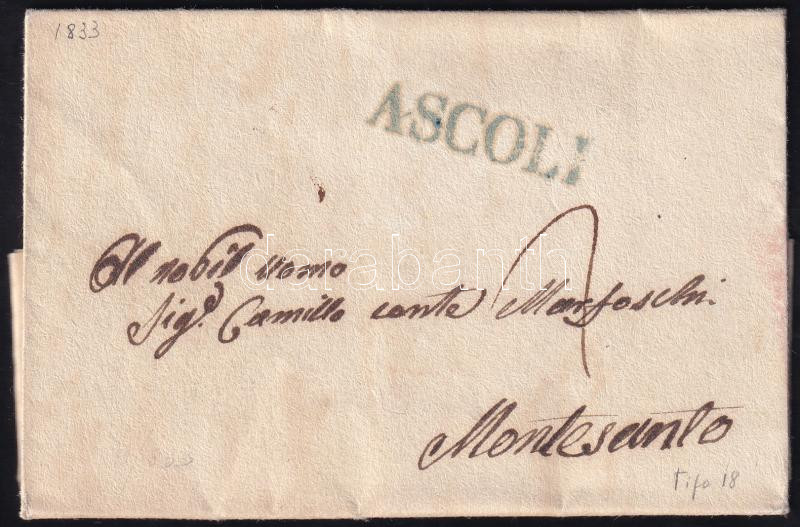 1833
ASCOLI
Al nobil uomo
Sig.r Camillo conte Marfoschi
Montesanto
Tipo 18
darabanth